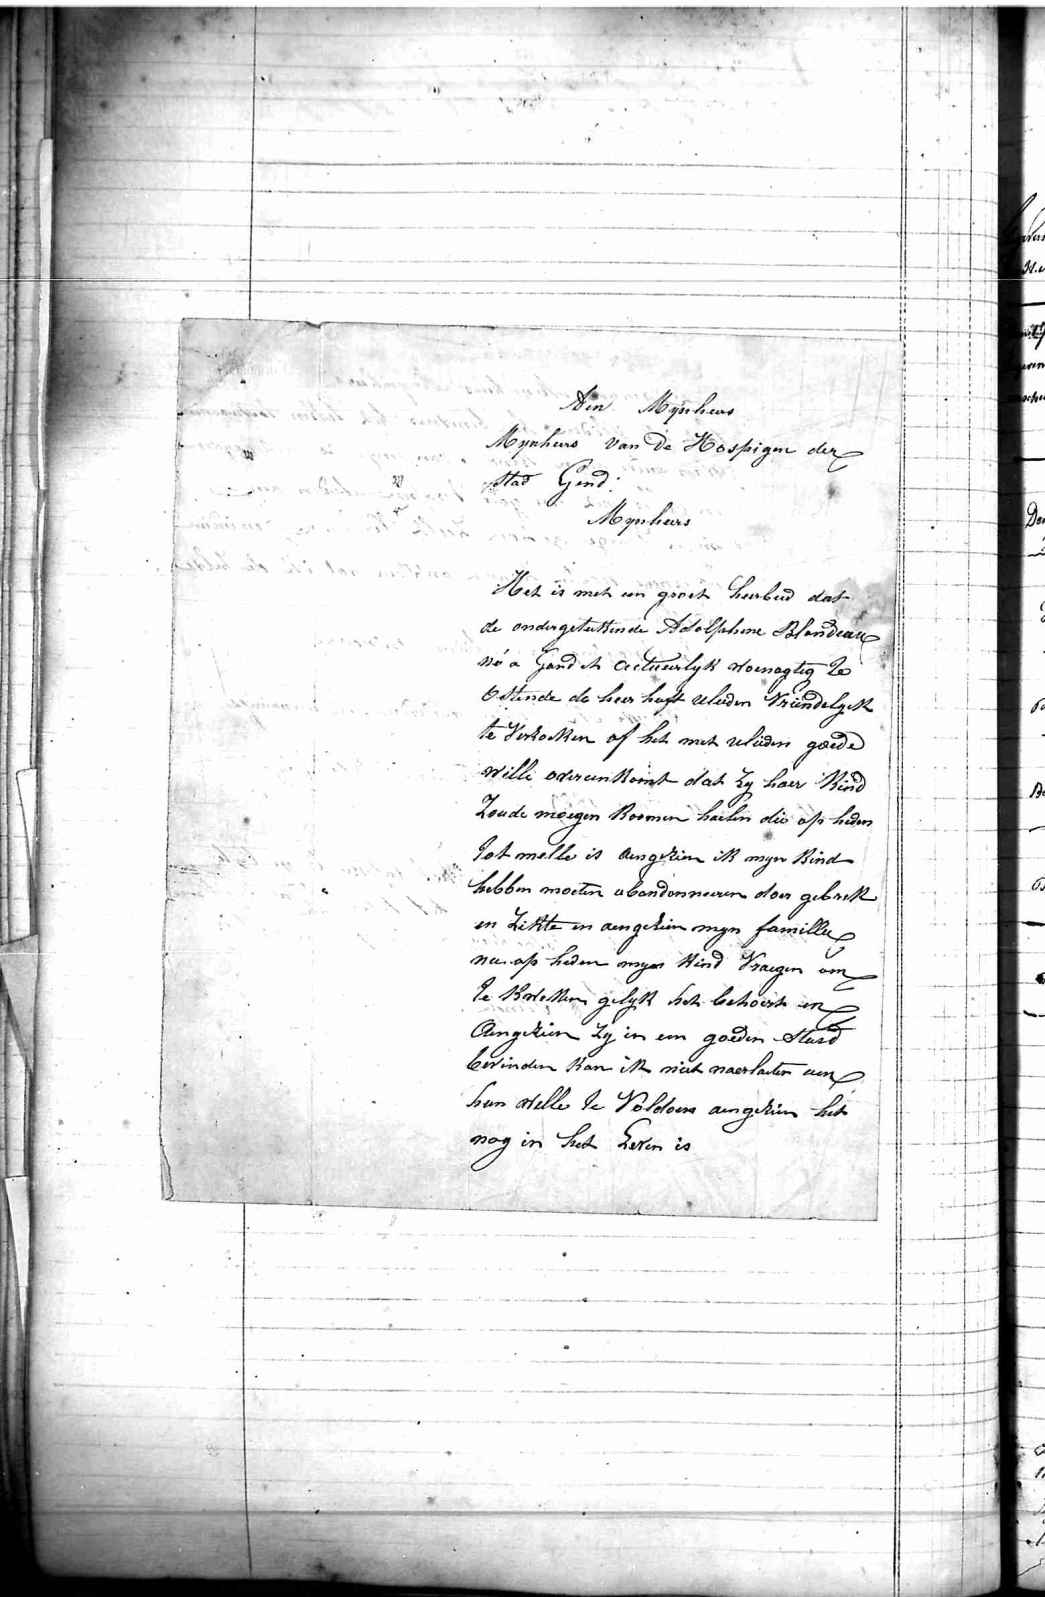 Aen Mijnheers
Mijnheers van de Hospigen der
stad Gend:
Mijnheers
Het is met een groet heerbied dat
de ondergeteKende Adolphine Blondeau
né a Gand et actueerlyk woenagteg te
Ostende de heer heeft ulieden Vriendelyck
te VerzoeKen of het met ulieden goede
wille overeenKomt dat Zy haer Kind
Zoude moegen Koomen haelen die op heden
tot melle is aengezien iK myn Kind
hebben moeten abandonneeren door gebreK
en ZiKtte en aengezien myn famillie
nu op heden myn Kind Vraegen om
te KweKen gelyK het behoort en
Aengezien Zy in een goeden Stand
bevinden Kan iK niet naerlaeten aen
hun wille te Voldoen aengezien het
nog in het Leven is